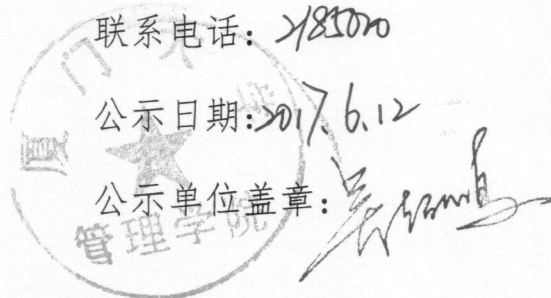 联系电话：2185020
公示日期：2017.6.12
公示单位盖章：
厦门大学
管理学院